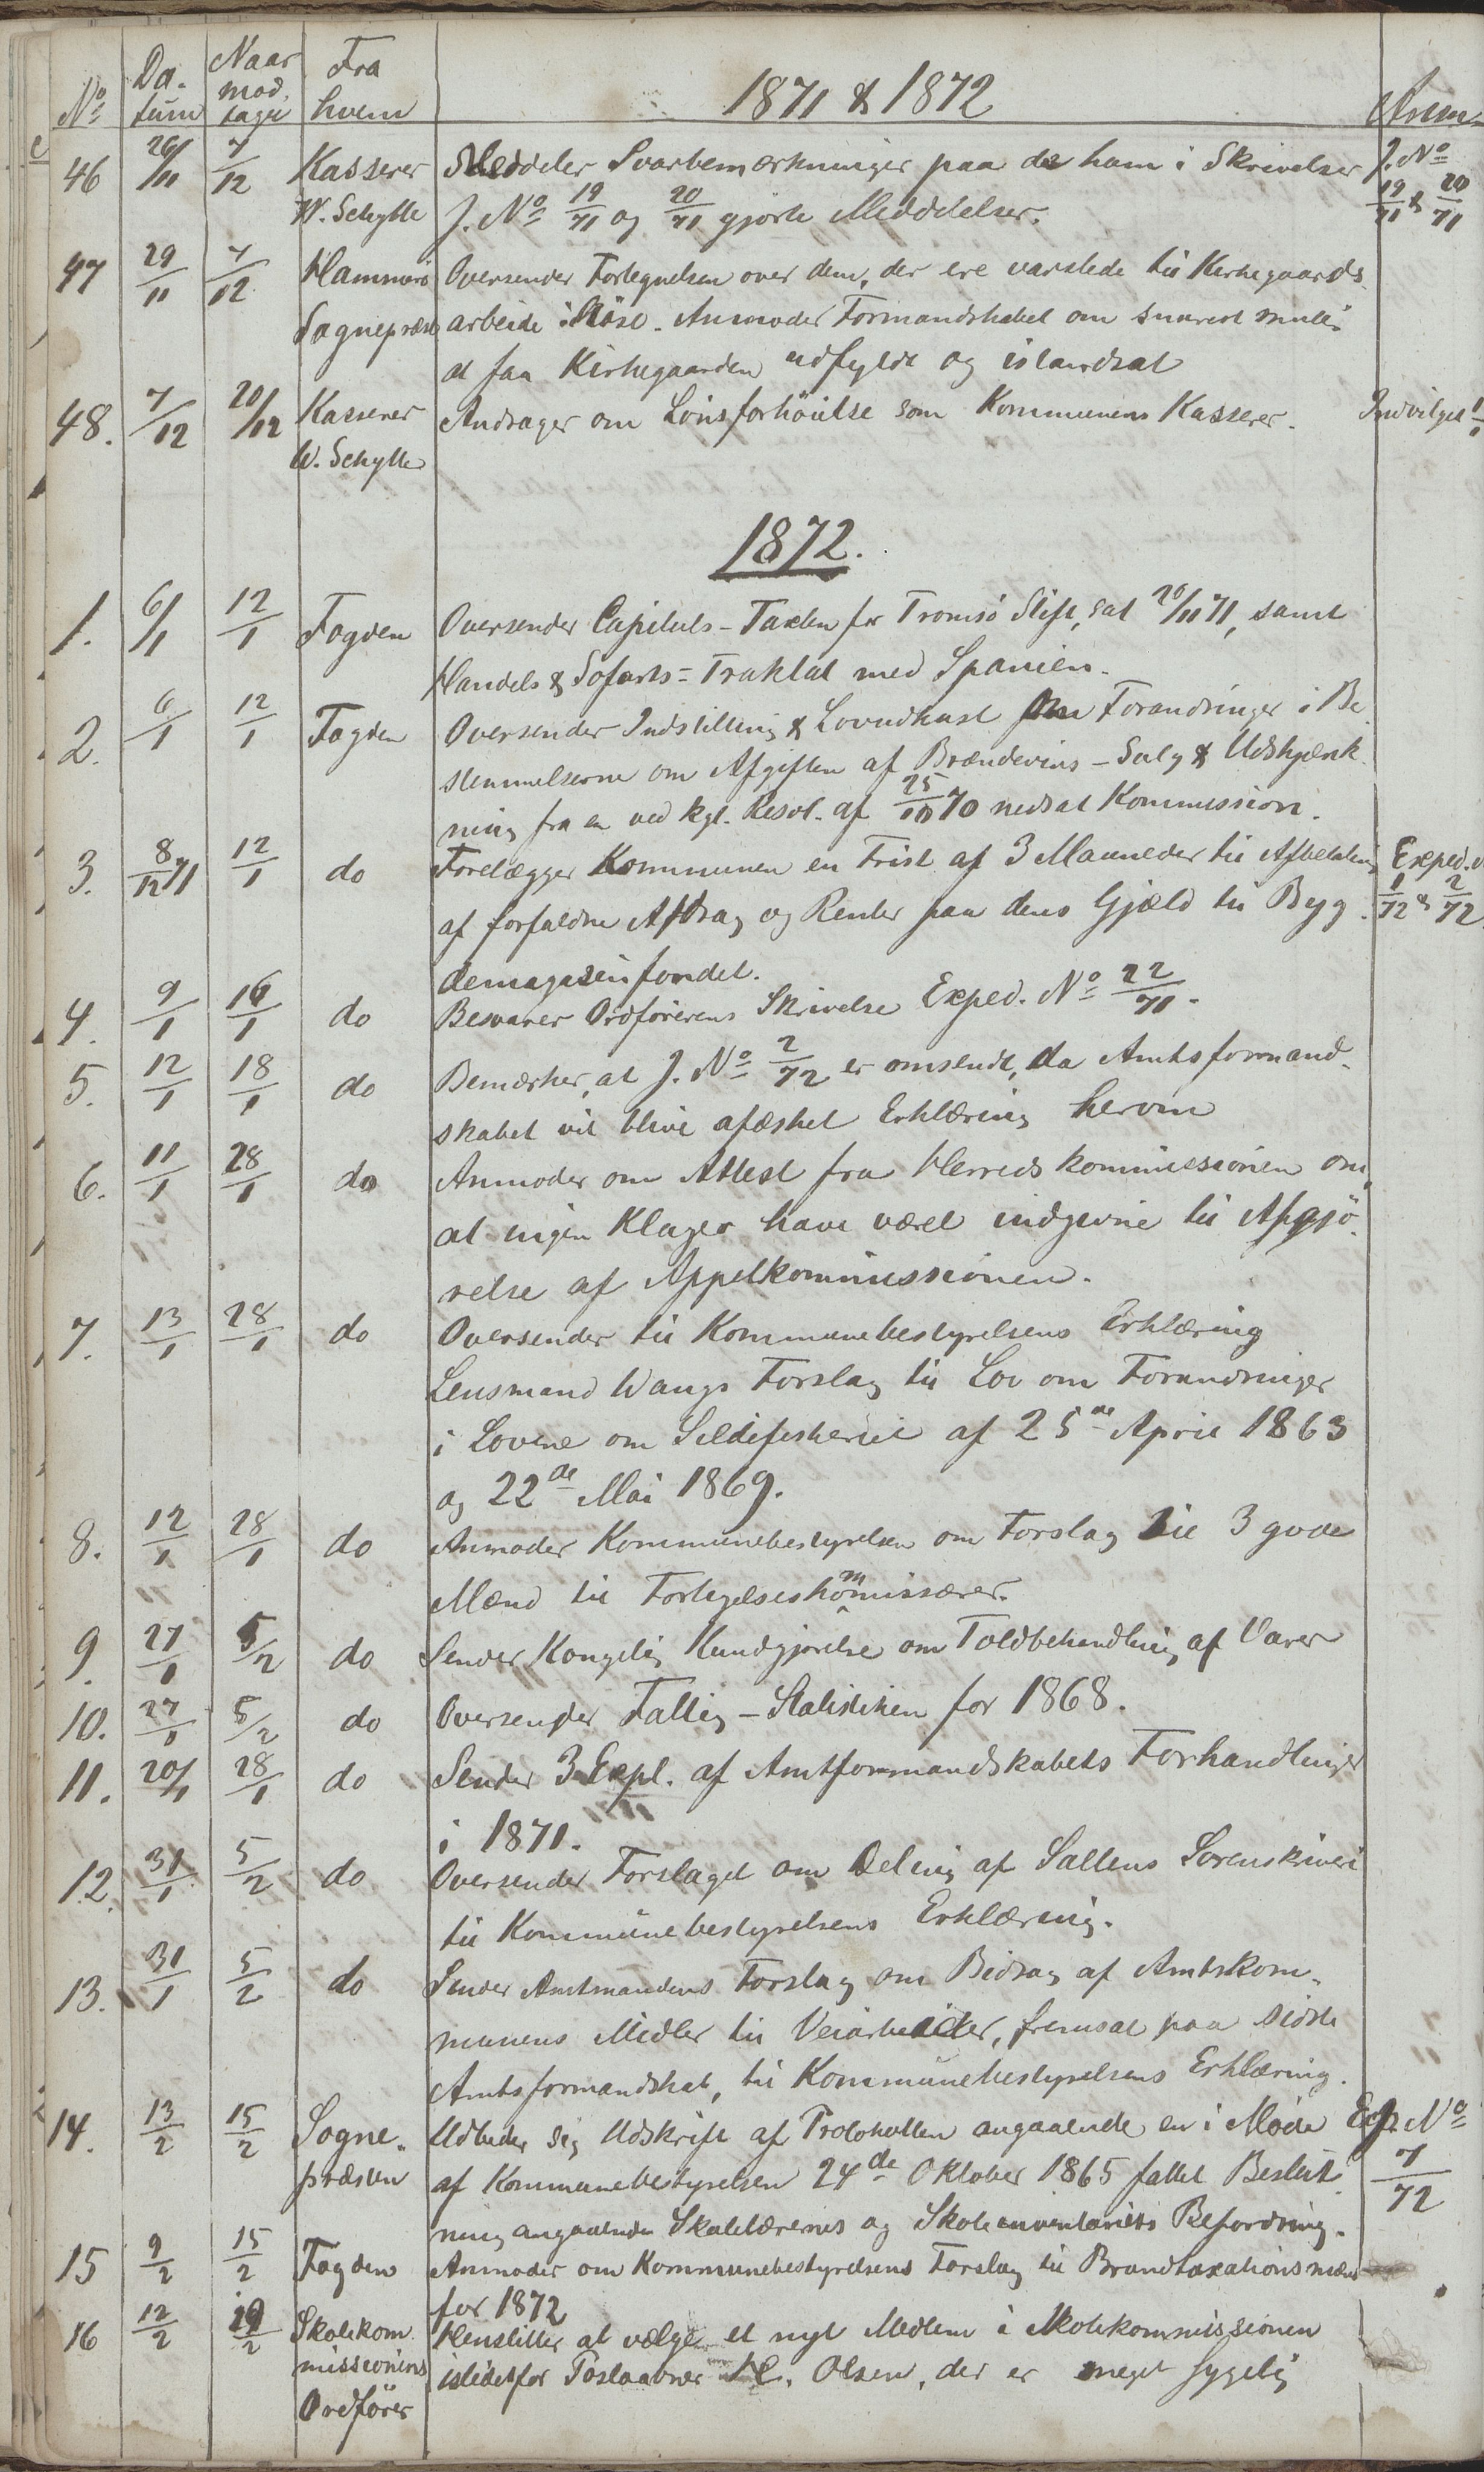 No Da- Naar Fra 1871 & 1872 Anm-
tum mod. hvem
tagn
46 26/11 7/12 Kasserer Meddeler Svarbemærkninger paa de ham i Skrivelser J. No
W. Schytte J. No 19/71 og 20/71 gjorte Meddelelser. 19/71 & 20/71
47 29/11 7/12 Hammerö Oversender Fortegnelsen over dem, der ere varslede til Kirkegaards
Sognepræst arbeide i Høst. Anmoder Formandskabet om snarest mulig
at faa Kirkegaarden udfyldt og istandsat
48. 7/12 20/12 Kasserer Andrager om Lönsforhöielse som Kommunens Kasserer. Indvilget
W. Schytte
1872.
1. 6/1 12/1 Fogden Oversender Capitels-Taxten for Tromsö Stift, dat 20/11 71, samt
Handels & Sofarts-Traktat med Spanien.
2. 6/1 12/1 Fogden Oversender Indstilling & Lovudkast Forandringer i Be
stemmelserne om Afgiften af Brændevins-Salg & Udskjænk
ning fra en ved kgl. Resol. af 25/10 70 nedsat Kommission.
3. 8/12 71 12/1 do Forelægger Kommunen en Frist af 3 Maaneder til Afbetaling Exped.
af forfaldne Afdrag og Renter paa dens Gjæld til Byg- 1/72 & 2/72
demagasinfondet.
4. 9/1 16/1 do Besvarer Ordförerens Skrivelse Exped. No 22/71.
5. 12/1 18/1 do Bemærker, at J. No 2/72 er omsendt, da Amtsformand-
skabet vil blive afæsket Erklæring herom
6. 11/1 28/1 do Anmoder om Attest fra Herredskommissionen om,
at ingen Klager have været indgivne til Afgjö-
relse af Appelkommissionen.
7. 13/1 28/1 do Oversender til Kommunebestyrelsens Erklæring
Lensmand Wangs Forslag til Lov om Forandringer
i Lovene om Sildefiskeriet af 25de April 1863
og 22de Mai 1869.
8. 12/1 28/1 do Anmoder Kommunebestyrelsen om Forslag til 3 gode
Mænd til Forligelseskommissærer.
9. 27/1 5/2 do Sender Kongelig Kundgjörelse om Toldbehandling af Varer
10. 27/1 5/2 do Oversender Fattig-Statistiken for 1868.
11. 20/1 28/1 do Sender 3 Expl. af Amtformandskabets Forhandlinger
i 1871.
12. 31/1 5/2 do Oversender Forslaget om Deling af Saltens Sorenskriveri
til Kommunebestyrelsens Erklæring.
13. 31/1 5/2 do Sender Amtmandens Forslag om Bidrag af Amtskom-
munens Midler til Veiarbeider, fremsat paa sidste
Amtsformandskab, til Kommunebestyrelsens Erklæring.
14. 13/2 15/2 Sogne- Udbeder sig Udskrift af Protokollen angaaende en i Möde Exp. No
præsten af Kommunebestyrelsen 24de Oktober 1865 fattet Beslut- 7/72
ning angaaende Skolelærernes og Skoleinventariets Befordring.
15 9/2 15/2 Fogden Anmoder om Kommunebestyrelsens Forslag til Brandtaxationsmænd
for 1872
16 12/2 19/2 Skolekom Henstiller at vælge et nyt Medlem i Skolekommissionen
missionens istedetfor Postaabner Olsen, der er meget sygelig
Ordförer